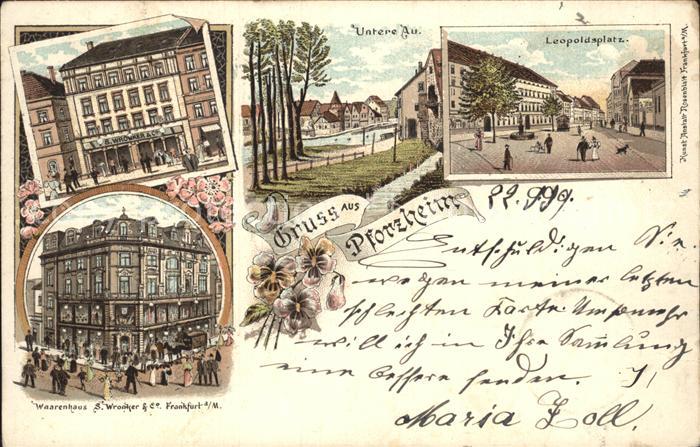 Untere Au.
Leopoldsplatz.
S. WRONKER & Co.
Kunst Anstalt Rosenblatt Frankfurt a/M.
Gruss aus
Pforzheim
22.9.99.
Entschuldigen Sie
wegen meiner letzten
schlechten Karte
will ich in Ihre Sammlung
eine bessere senden.
Maria Zoll.
Waarenhaus S. Wronker & Co. Frankfurt a/M.